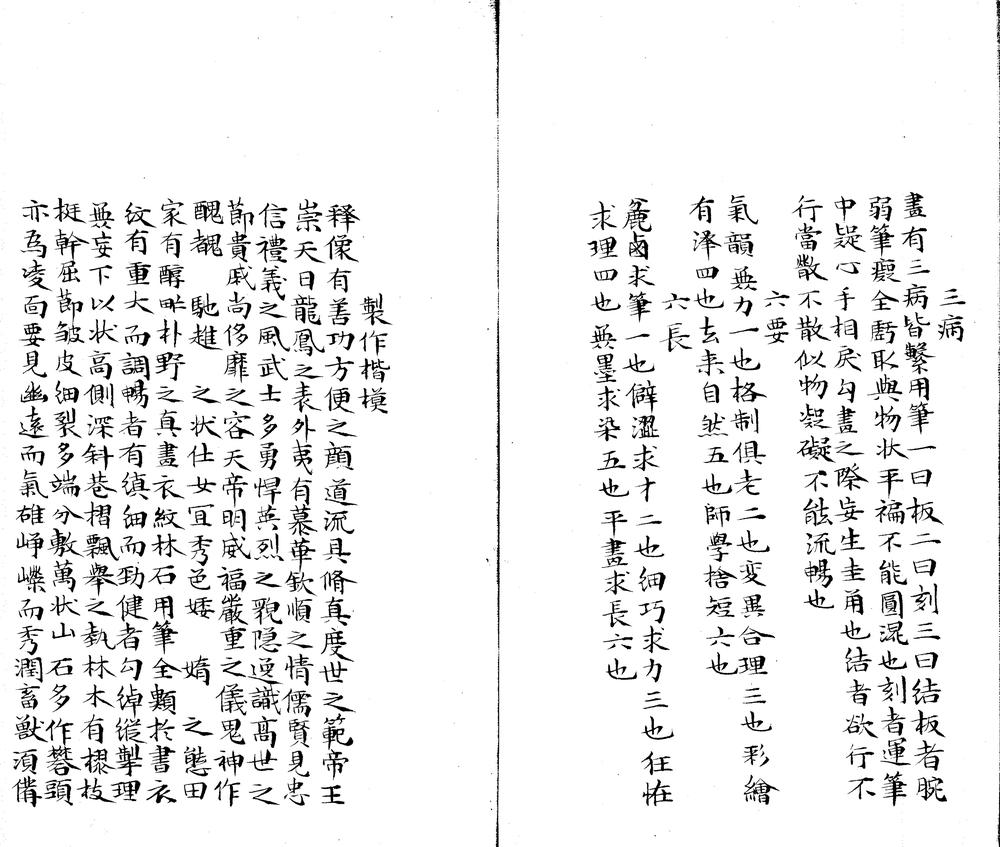 三病
畫有三病皆繫用筆一曰板二曰刻三曰結板者腕
弱筆癡全虧取與物状平褊不能圓混也刻者運筆
中疑心手相戾勾畫之際妄生圭角也結者欲行不
行當散不散似物凝礙不能流暢也
六要
氣韻無力一也格制俱老二也变異合理三也彩繪
有泽四也去来自然五也師學捨短六也
六長
麁鹵求筆一也僻澀求才二也细巧求力三也狂恠
求理四也無墨求染五也平畫求長六也
製作楷模
释像有善功方便之顔道流具脩真度世之範帝王
崇天日龍鳳之表外夷有慕華欽順之情儒賢見忠
信禮義之風武士多勇悍英烈之貌隐逸識高世之
節貴戚尚侈靡之容天帝明威福嚴重之儀鬼神作
醜䰫馳趡之状仕女宜秀色婑媠之態田
家有醇甿朴野之真畫衣紋林石用筆全類於書衣
紋有重大而調暢者有縝細而勁健者勾綽縱掣理
無妄下以状高側深斜卷摺飄舉之埶林木有樛枝
挺幹屈節皱皮细裂多端分敷萬状山石多作礬頭
亦爲凌面要見幽遠而氣雄峥嶸而秀潤畜獸須備